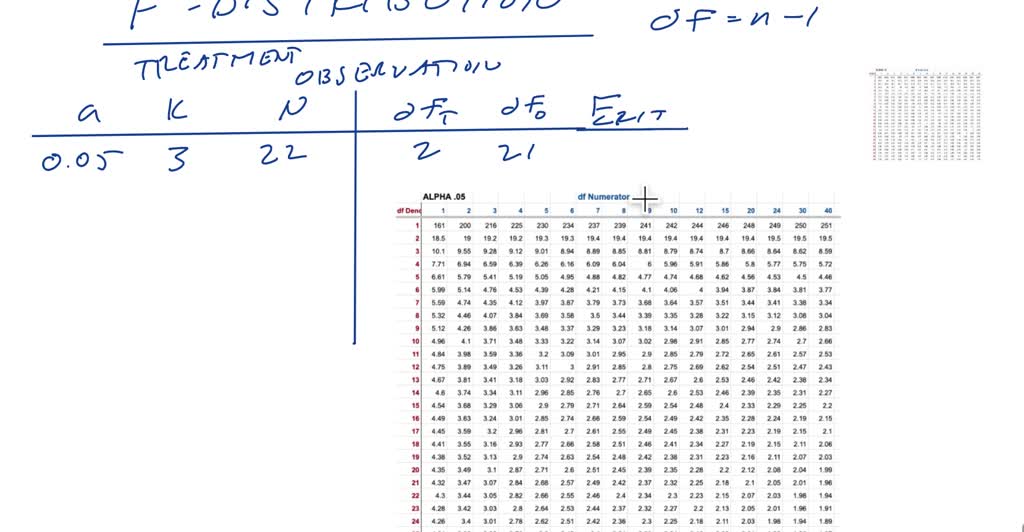 F - DISTRIBUTION
df = n - 1
TREATMENT
OBSERVATION
a K N dFT dFO FCRIT
0.05 3 22 2 21
ALPHA .05 df Numerator
df Deno 1 2 3 4 5 6 7 8 9 10 12 15 20 24 30 40
1 161 200 216 225 230 234 237 239 241 242 244 246 248 249 250 251
2 18.5 19 19.2 19.2 19.3 19.3 19.4 19.4 19.4 19.4 19.4 19.4 19.4 19.5 19.5 19.5
3 10.1 9.55 9.28 9.12 9.01 8.94 8.89 8.85 8.81 8.79 8.74 8.7 8.66 8.64 8.62 8.59
4 7.71 6.94 6.59 6.39 6.26 6.16 6.09 6.04 6 5.96 5.91 5.86 5.8 5.77 5.75 5.72
5 6.61 5.79 5.41 5.19 5.05 4.95 4.88 4.82 4.77 4.74 4.68 4.62 4.56 4.53 4.5 4.46
6 5.99 5.14 4.76 4.53 4.39 4.28 4.21 4.15 4.1 4.06 4 3.94 3.87 3.84 3.81 3.77
7 5.59 4.74 4.35 4.12 3.97 3.87 3.79 3.73 3.68 3.64 3.57 3.51 3.44 3.41 3.38 3.34
8 5.32 4.46 4.07 3.84 3.69 3.58 3.5 3.44 3.39 3.35 3.28 3.22 3.15 3.12 3.08 3.04
9 5.12 4.26 3.86 3.63 3.48 3.37 3.29 3.23 3.18 3.14 3.07 3.01 2.94 2.9 2.86 2.83
10 4.96 4.1 3.71 3.48 3.33 3.22 3.14 3.07 3.02 2.98 2.91 2.85 2.77 2.74 2.7 2.66
11 4.84 3.98 3.59 3.36 3.2 3.09 3.01 2.95 2.9 2.85 2.79 2.72 2.65 2.61 2.57 2.53
12 4.75 3.89 3.49 3.26 3.11 3 2.91 2.85 2.8 2.75 2.69 2.62 2.54 2.51 2.47 2.43
13 4.67 3.81 3.41 3.18 3.03 2.92 2.83 2.77 2.71 2.67 2.6 2.53 2.46 2.42 2.38 2.34
14 4.6 3.74 3.34 3.11 2.96 2.85 2.76 2.7 2.65 2.6 2.53 2.46 2.39 2.35 2.31 2.27
15 4.54 3.68 3.29 3.06 2.9 2.79 2.71 2.64 2.59 2.54 2.48 2.4 2.33 2.29 2.25 2.2
16 4.49 3.63 3.24 3.01 2.85 2.74 2.66 2.59 2.54 2.49 2.42 2.35 2.28 2.24 2.19 2.15
17 4.45 3.59 3.2 2.96 2.81 2.7 2.61 2.55 2.49 2.45 2.38 2.31 2.23 2.19 2.15 2.1
18 4.41 3.55 3.16 2.93 2.77 2.66 2.58 2.51 2.46 2.41 2.34 2.27 2.19 2.15 2.11 2.06
19 4.38 3.52 3.13 2.9 2.74 2.63 2.54 2.48 2.42 2.38 2.31 2.23 2.16 2.11 2.07 2.03
20 4.35 3.49 3.1 2.87 2.71 2.6 2.51 2.45 2.39 2.35 2.28 2.2 2.12 2.08 2.04 1.99
21 4.32 3.47 3.07 2.84 2.68 2.57 2.49 2.42 2.37 2.32 2.25 2.18 2.1 2.05 2.01 1.96
22 4.3 3.44 3.05 2.82 2.66 2.55 2.46 2.4 2.34 2.3 2.23 2.15 2.07 2.03 1.98 1.94
23 4.28 3.42 3.03 2.8 2.64 2.53 2.44 2.37 2.32 2.27 2.2 2.13 2.05 2.01 1.96 1.91
24 4.26 3.4 3.01 2.78 2.62 2.51 2.42 2.36 2.3 2.25 2.18 2.11 2.03 1.98 1.94 1.89